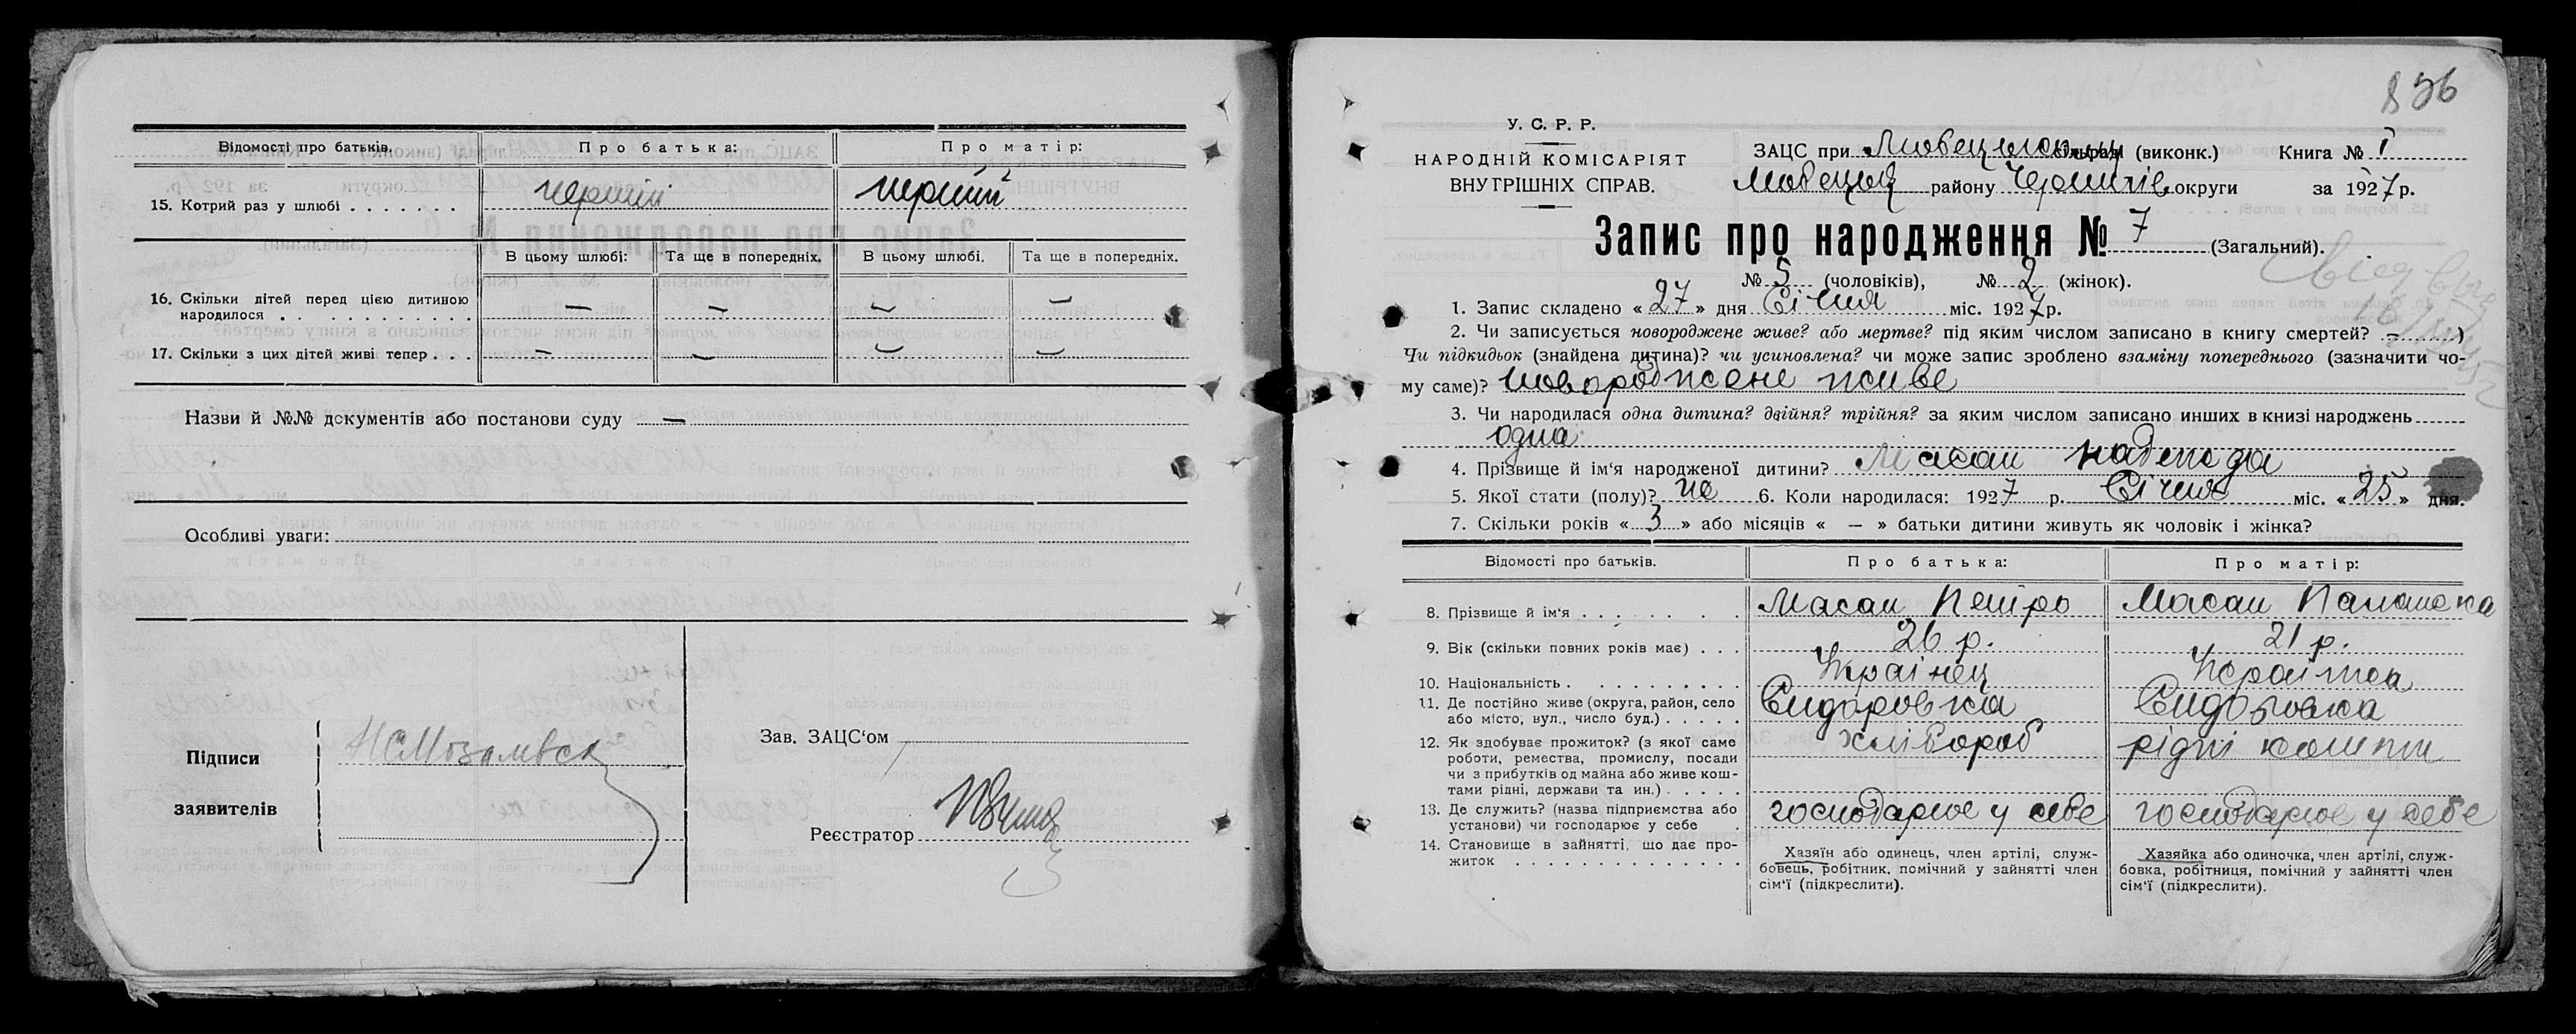 Відомості про батьків. Про батька: Про матір:
15. Котрий раз у шлюбі . . . . . . . перший перший
В цьому шлюбі: Та ще в попередніх. В цьому шлюбі. Та ще в попередніх.
16. Скільки дітей перед цією дитиною
народилося . . . . . . . . . . . — — — —
17. Скільки з цих дітей живі тепер . . . — — — —
Назви й №№ документів або постанови суду —
Особливі уваги:
Підписи
заявителів
Зав. ЗАЦС'ом
Реєстратор
856
У. С. Р. Р.
НАРОДНІЙ КОМІСАРІЯТ
ВНУТРІШНІХ СПРАВ.
ЗАЦС при Любецькому сільраді (виконк.) Книга № I
Любецьк району Чернигів округи за 1927 р.
Запис про народження № 7 (Загальний).
№ 5 (чоловіків), № 2 (жінок).
1. Запис складено « 27 » дня Січня міс. 1927 р.
2. Чи записується новороджене живе? або мертве? під яким числом записано в книгу смертей? —)
Чи підкидьок (знайдена дитина)? чи усиновлена? чи може запис зроблено взаміну попереднього (зазначити чо-
му саме)? новороджене живе
3. Чи народилася одна дитина? двійня? трійня? за яким числом записано инших в книзі народжень
одна
4. Прізвище й ім'я народженої дитини? Масан Надежда
5. Якої стати (полу)? же 6. Коли народилася: 1927 р. Січня міс. « 25 » дня.
7. Скільки років « 3 » або місяців « — » батьки дитини живуть як чоловік і жінка?
Відомості про батьків. Про батька: Про матір:
8. Прізвище й ім'я . . . . . . . Масан Петро Масан Палажка
9. Вік (скільки повних років має) . . . 26 р. 21 р.
10. Національність . . . . . . . . . . Украінец Украінка
11. Де постійно живе (округа, район, село
або місто, вул., число буд.) . . . . . Сидоровка Сидоровка
12. Як здобуває прожиток? (з якої саме
роботи, ремества, промислу, посади
чи з прибутків од майна або живе кош-
тами рідні, держави та ин.) . . . . . хлібороб рідні кошти
13. Де служить? (назва підприємства або
установи) чи господарює у себе господарює у себе господарює у себе
14. Становище в зайнятті, що дає про-
житок . . . . . . . . . . . . . .
Хазяїн або одинець, член артілі, служ-
бовець, робітник, помічний у зайнятті член
сім'ї (підкреслити).
Хазяйка або одиночка, член артілі, служ-
бовка, робітниця, помічний у зайнятті член
сім'ї (підкреслити).